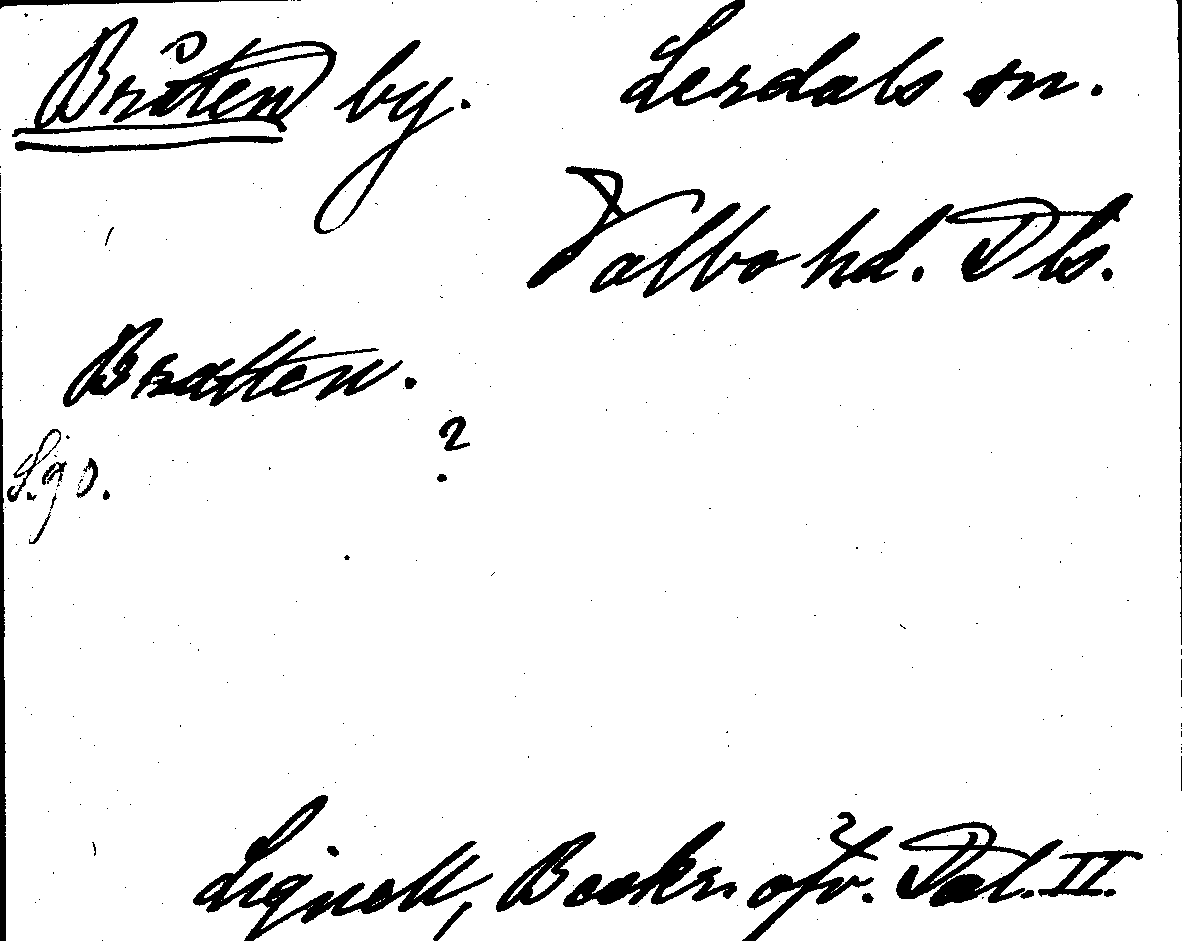 Bråten by. Lerdals sn.
Valbo hd. Dls.
Bratten.
S. 90. ?
Lignell, Beskr. öfv. Dal. II.